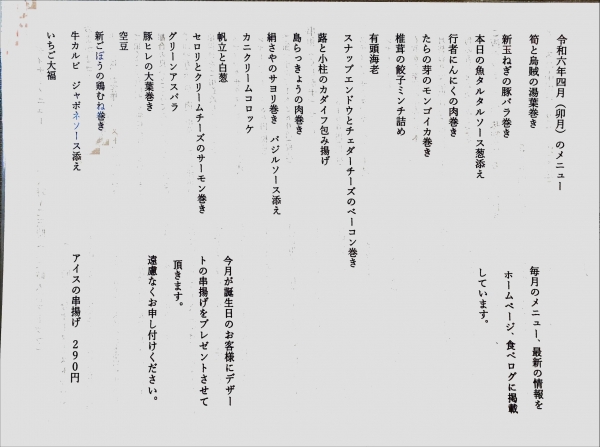 令和六年四月（卯月）のメニュー
筍と烏賊の湯葉巻き
新玉ねぎの豚バラ巻き
本日の魚タルタルソース葱添え
行者にんにくの肉巻き
たらの芽のモンゴイカ巻き
椎茸の餃子ミンチ詰め
有頭海老
スナップエンドウとチェダーチーズのベーコン巻き
蕗と小柱のカダイフ包み揚げ
島らっきょうの肉巻き
絹さやのサヨリ巻き　バジルソース添え
カニクリームコロッケ
帆立と白葱
セロリとクリームチーズのサーモン巻き
グリーンアスパラ
豚ヒレの大葉巻き
空豆
新ごぼうの鶏むね巻き
牛カルビ　ジャポネソース添え
いちご大福
毎月のメニュー、最新の情報を
ホームページ、食べログに掲載
しています。
今月が誕生日のお客様にデザー
トの串揚げをプレゼントさせて
頂きます。
遠慮なくお申し付けください。
アイスの串揚げ　２９０円